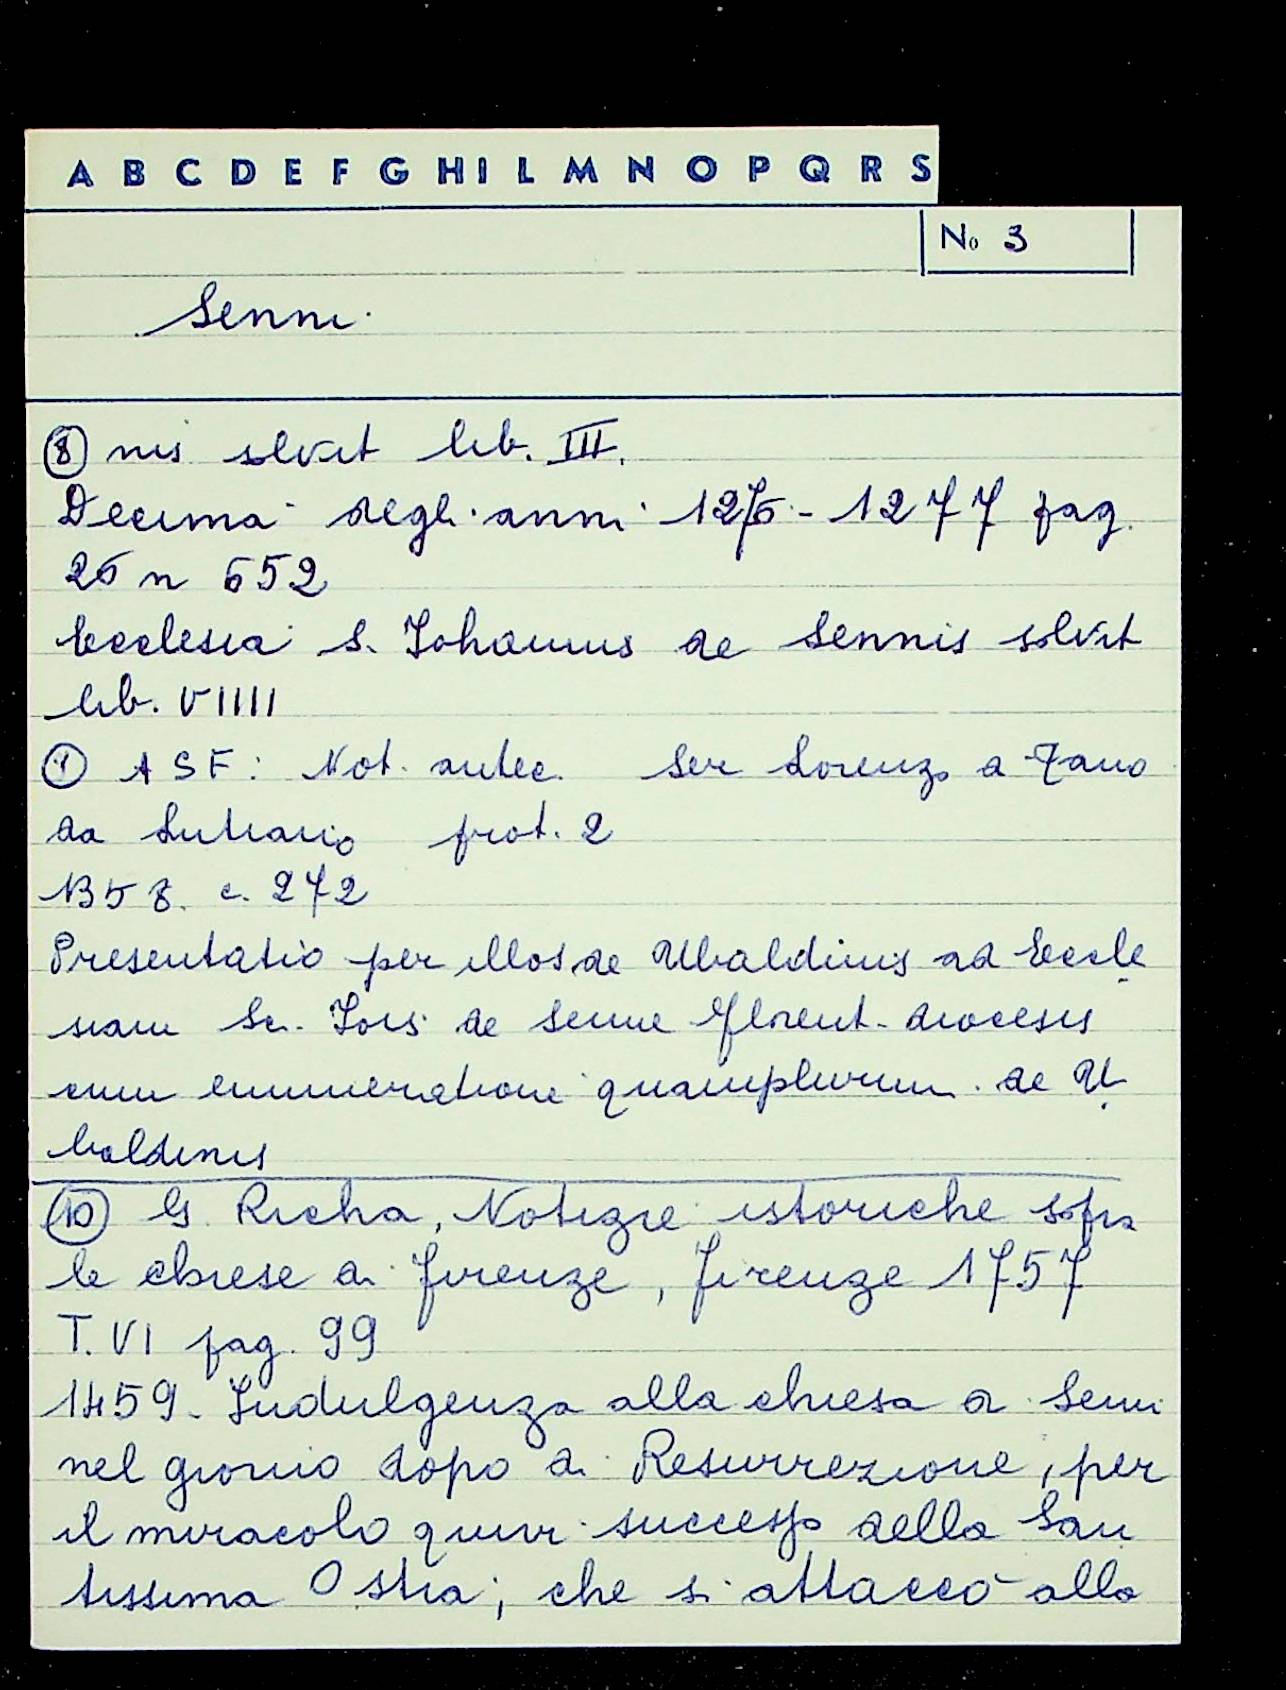 A B C D E F G H I L M N O P Q R S
No 3
Senni
8 nis solvit lib. III.
Decima degli anni 1276 - 1277 pag.
26 n 652
Ecclesia S. Johannis de Sennis solvit
lib. VIIII
9 ASF: Not. antec. Ser Lorenzo di Tano
da Lutiano prot. 2
1358. c. 272
Presentatio per illos de Ubaldinis ad Eccle
siam Sci. Iois de Senne Florent. diocesis
cum enumeratione quamplurium de U
baldinis
10 G. Richa, Notizie istoriche sopra
le chiese di Firenze, Firenze 1757
T. VI pag. 99
1459. Indulgenza alla chiesa di Senni
nel giorno dopo di Resurrezione, per
il miracolo quivi successo della San
tissima Ostia, che si attaccò alla